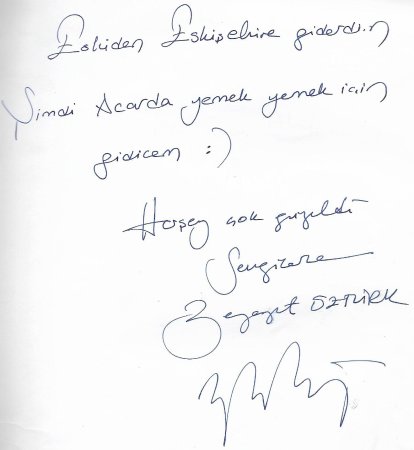 Eskiden Eskişehire giderdim
Şimdi Acarda yemek yemek için
gidicem :)
Herşey çok güzeldi
Sevgilerle
ÖZTÜRK